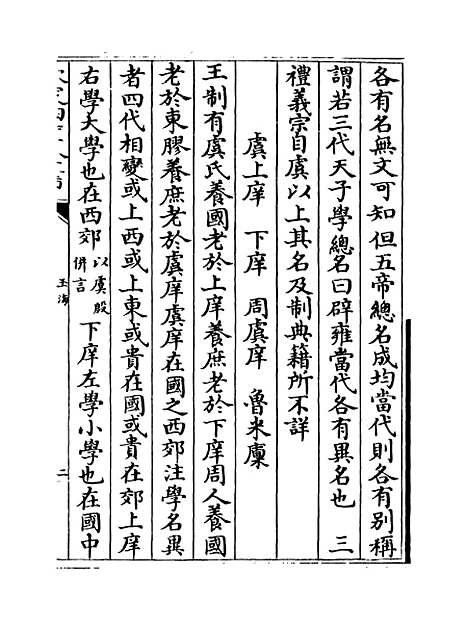 各有名無文可知但五帝總名成均當代則各有別稱
謂若三代天子學總名曰辟雍當代各有異名也 三
禮義宗自虞以上其名及制典籍所不詳
虞上庠 下庠 周虞庠 魯米廩
王制有虞氏養國老於上庠養庶老於下庠周人養國
老於東膠養庶老於虞庠虞庠在國之西郊注學名異
者四代相變或上西或上東或貴在國或貴在郊上庠
右學大學也在西郊以虞殷併言下庠左學小學也在國中
玉海
二